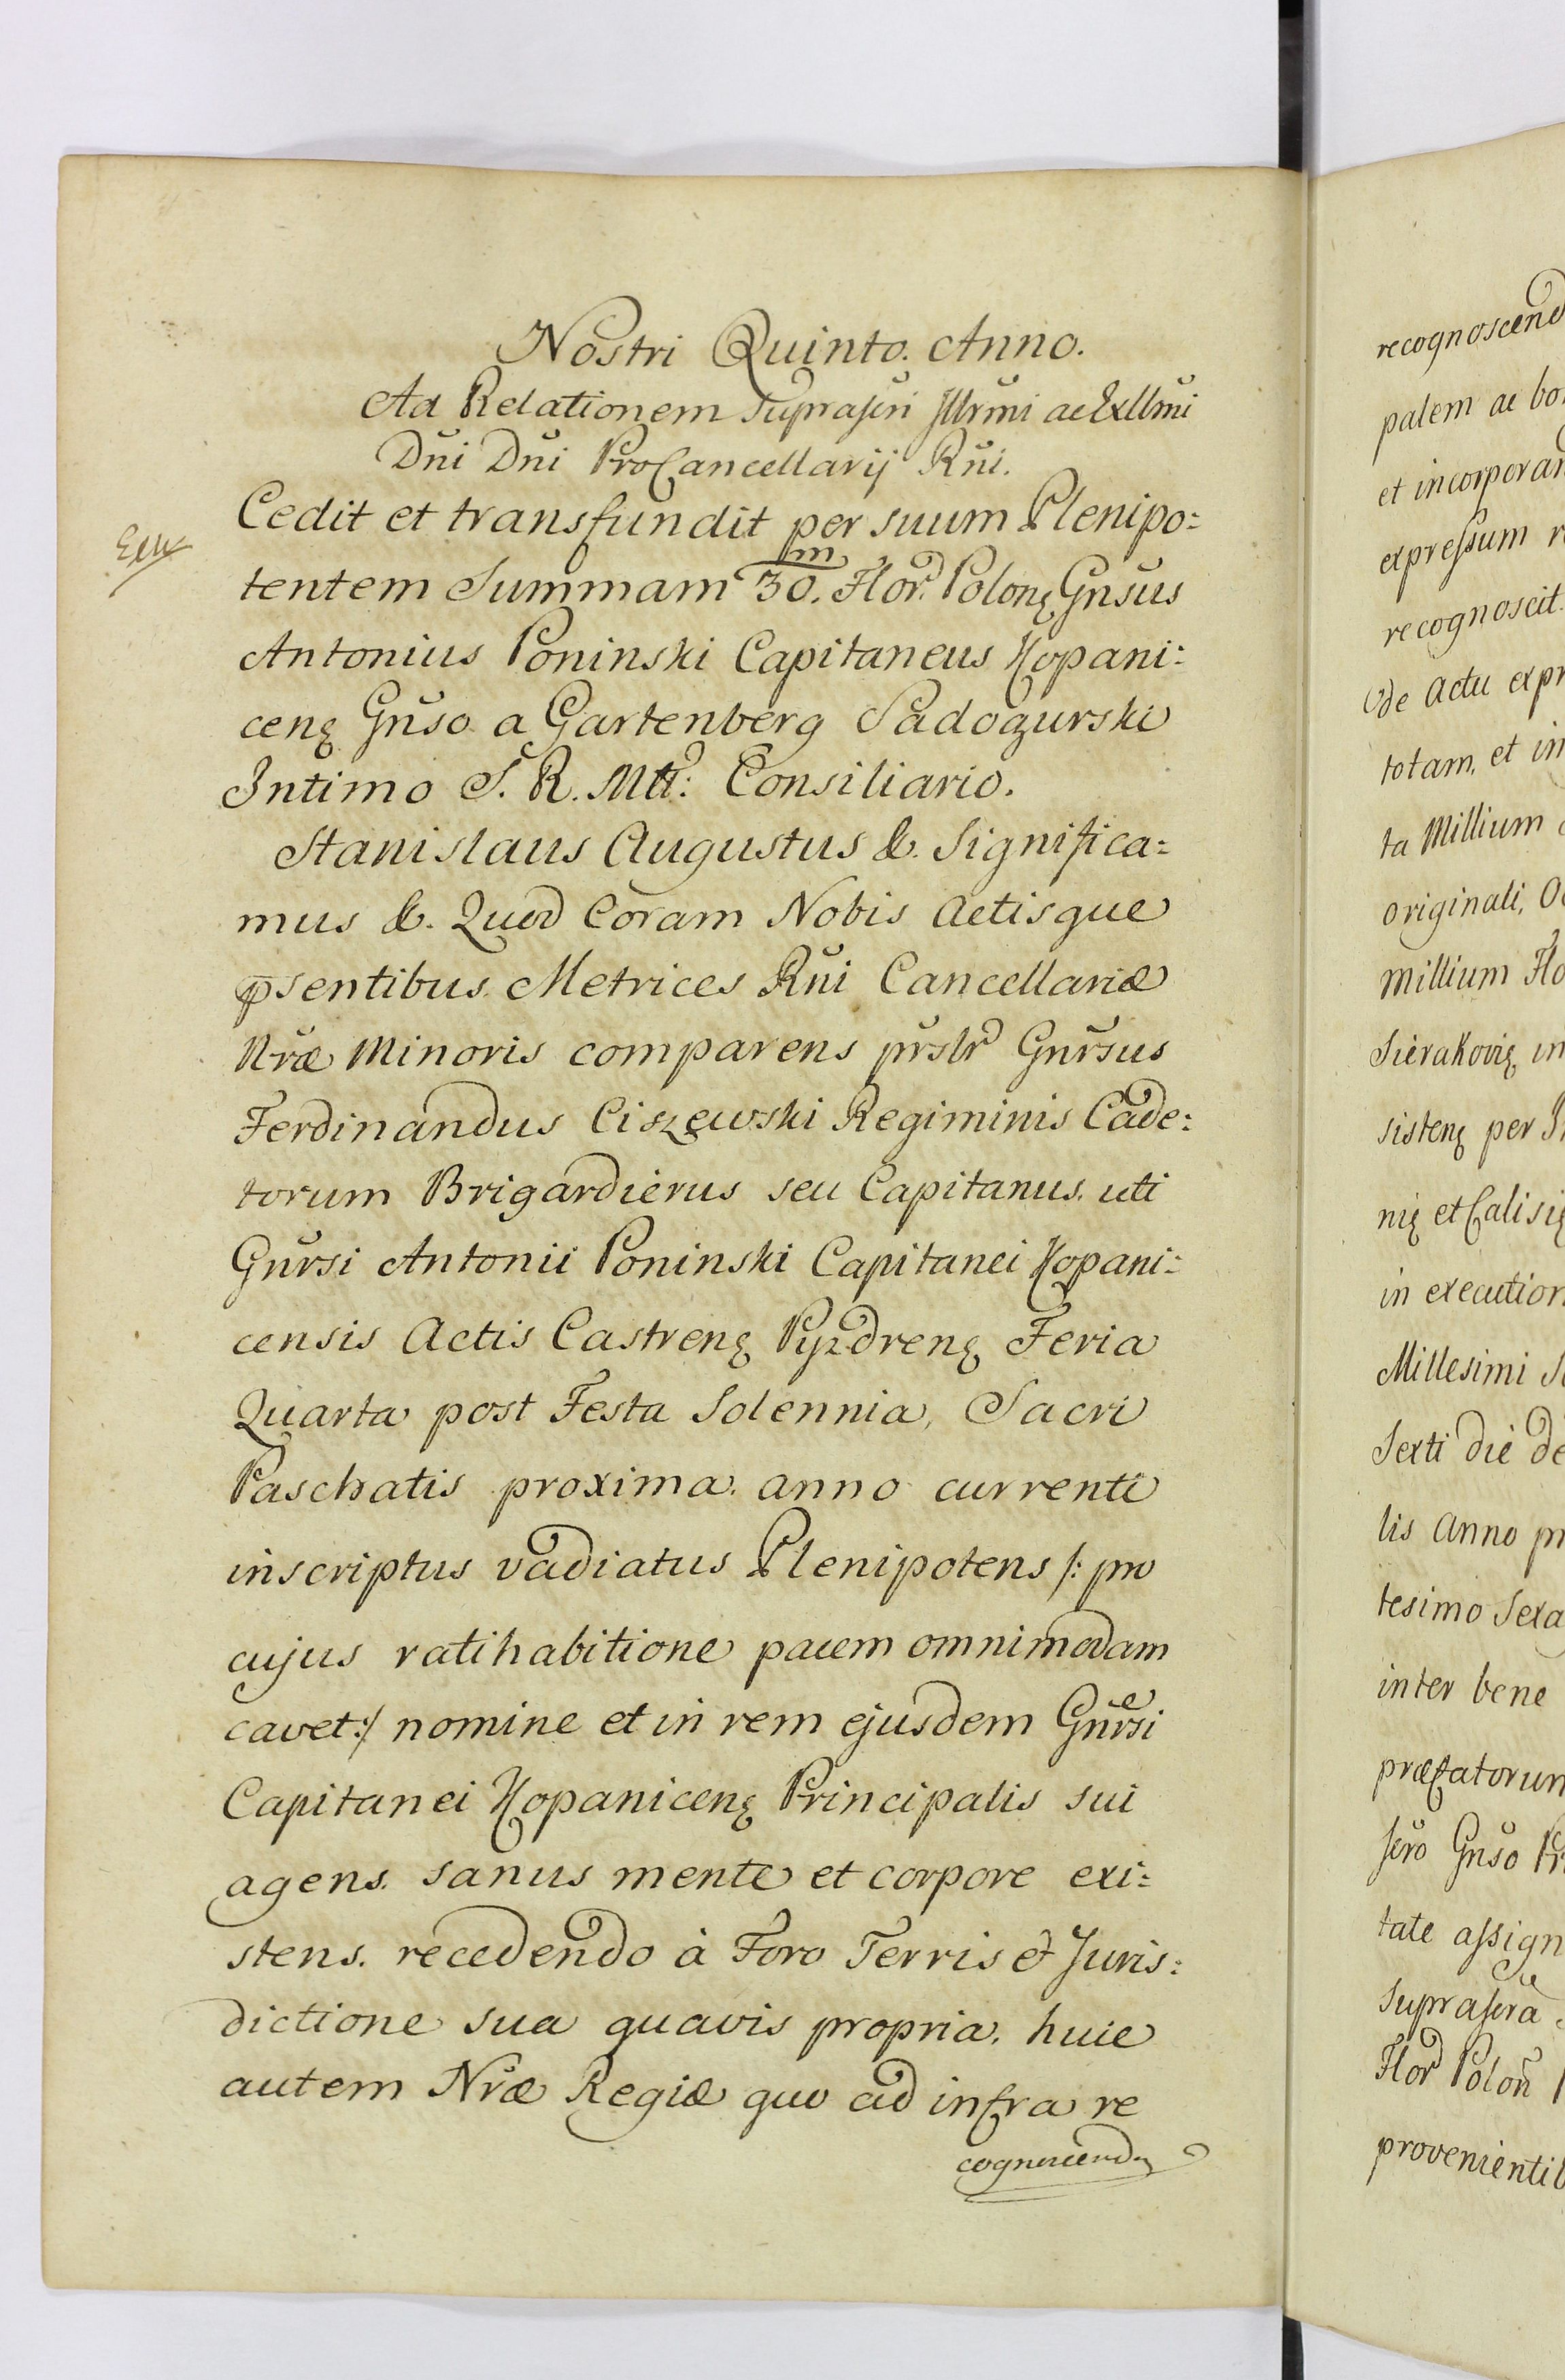 Nostri Quinto. Anno.
Ad Relationem Supraſcri Jllrmi ac Exllmi
Dni Dni ProCancellarij Rni.
Cedit et transfundit per suum Plenipo:
tentem Summam 30.m Flor. Polonę Gnsus
Antonius Poninski Capitaneus Kopani:
cenę Gnso a Gartenberg Sadogurski
Intimo S. R. Mtt: Consiliario.
Stanislaus Augustus &. Significa:
mus &. Quod Coram Nobis Actisque
psentibus Metrices Rni Cancellariæ
Nræ Minoris comparens prslr Gnrsus
Ferdinandus Ciszewski Regiminis Cade:
torum Brigardierus seu Capitanus. uti
Gnrsi Antonii Poninski Capitanei Kopani:
censis Actis Castrenę Pyzdrenę Feria
Quarta post Festa Solennia, Sacri
Paschatis proxima. anno currenti
inscriptus vadiatus Plenipotens /: pro
cujus ratihabitione pacem omnimodam
cavet:/ nomine et in rem ejusdem Gnrsi
Capitanei Kopanicenę Principalis sui
agens. sanus mente et corpore exi:
stens. recedendo à Foro Terris et Juris:
dictione sua quavis propria. huic
autem Nræ Regiæ quo ad infra re
cognoscend
recognoscend
palem ac bo
et incorporan
expreſsum r
recognoscit.
de Actu expr
totam, et in
ta Millium
originali, O
Millium Flo
Sierakovię in
sistenę per
nię et Calisię
in execution
Millesimi S
Sexti die de
lis Anno pr
tesimo Sexa
inter bene
præfatorum
ſcro Gnso Pr
tate aſsign
Supraſcra
Flor Polon
provenientib